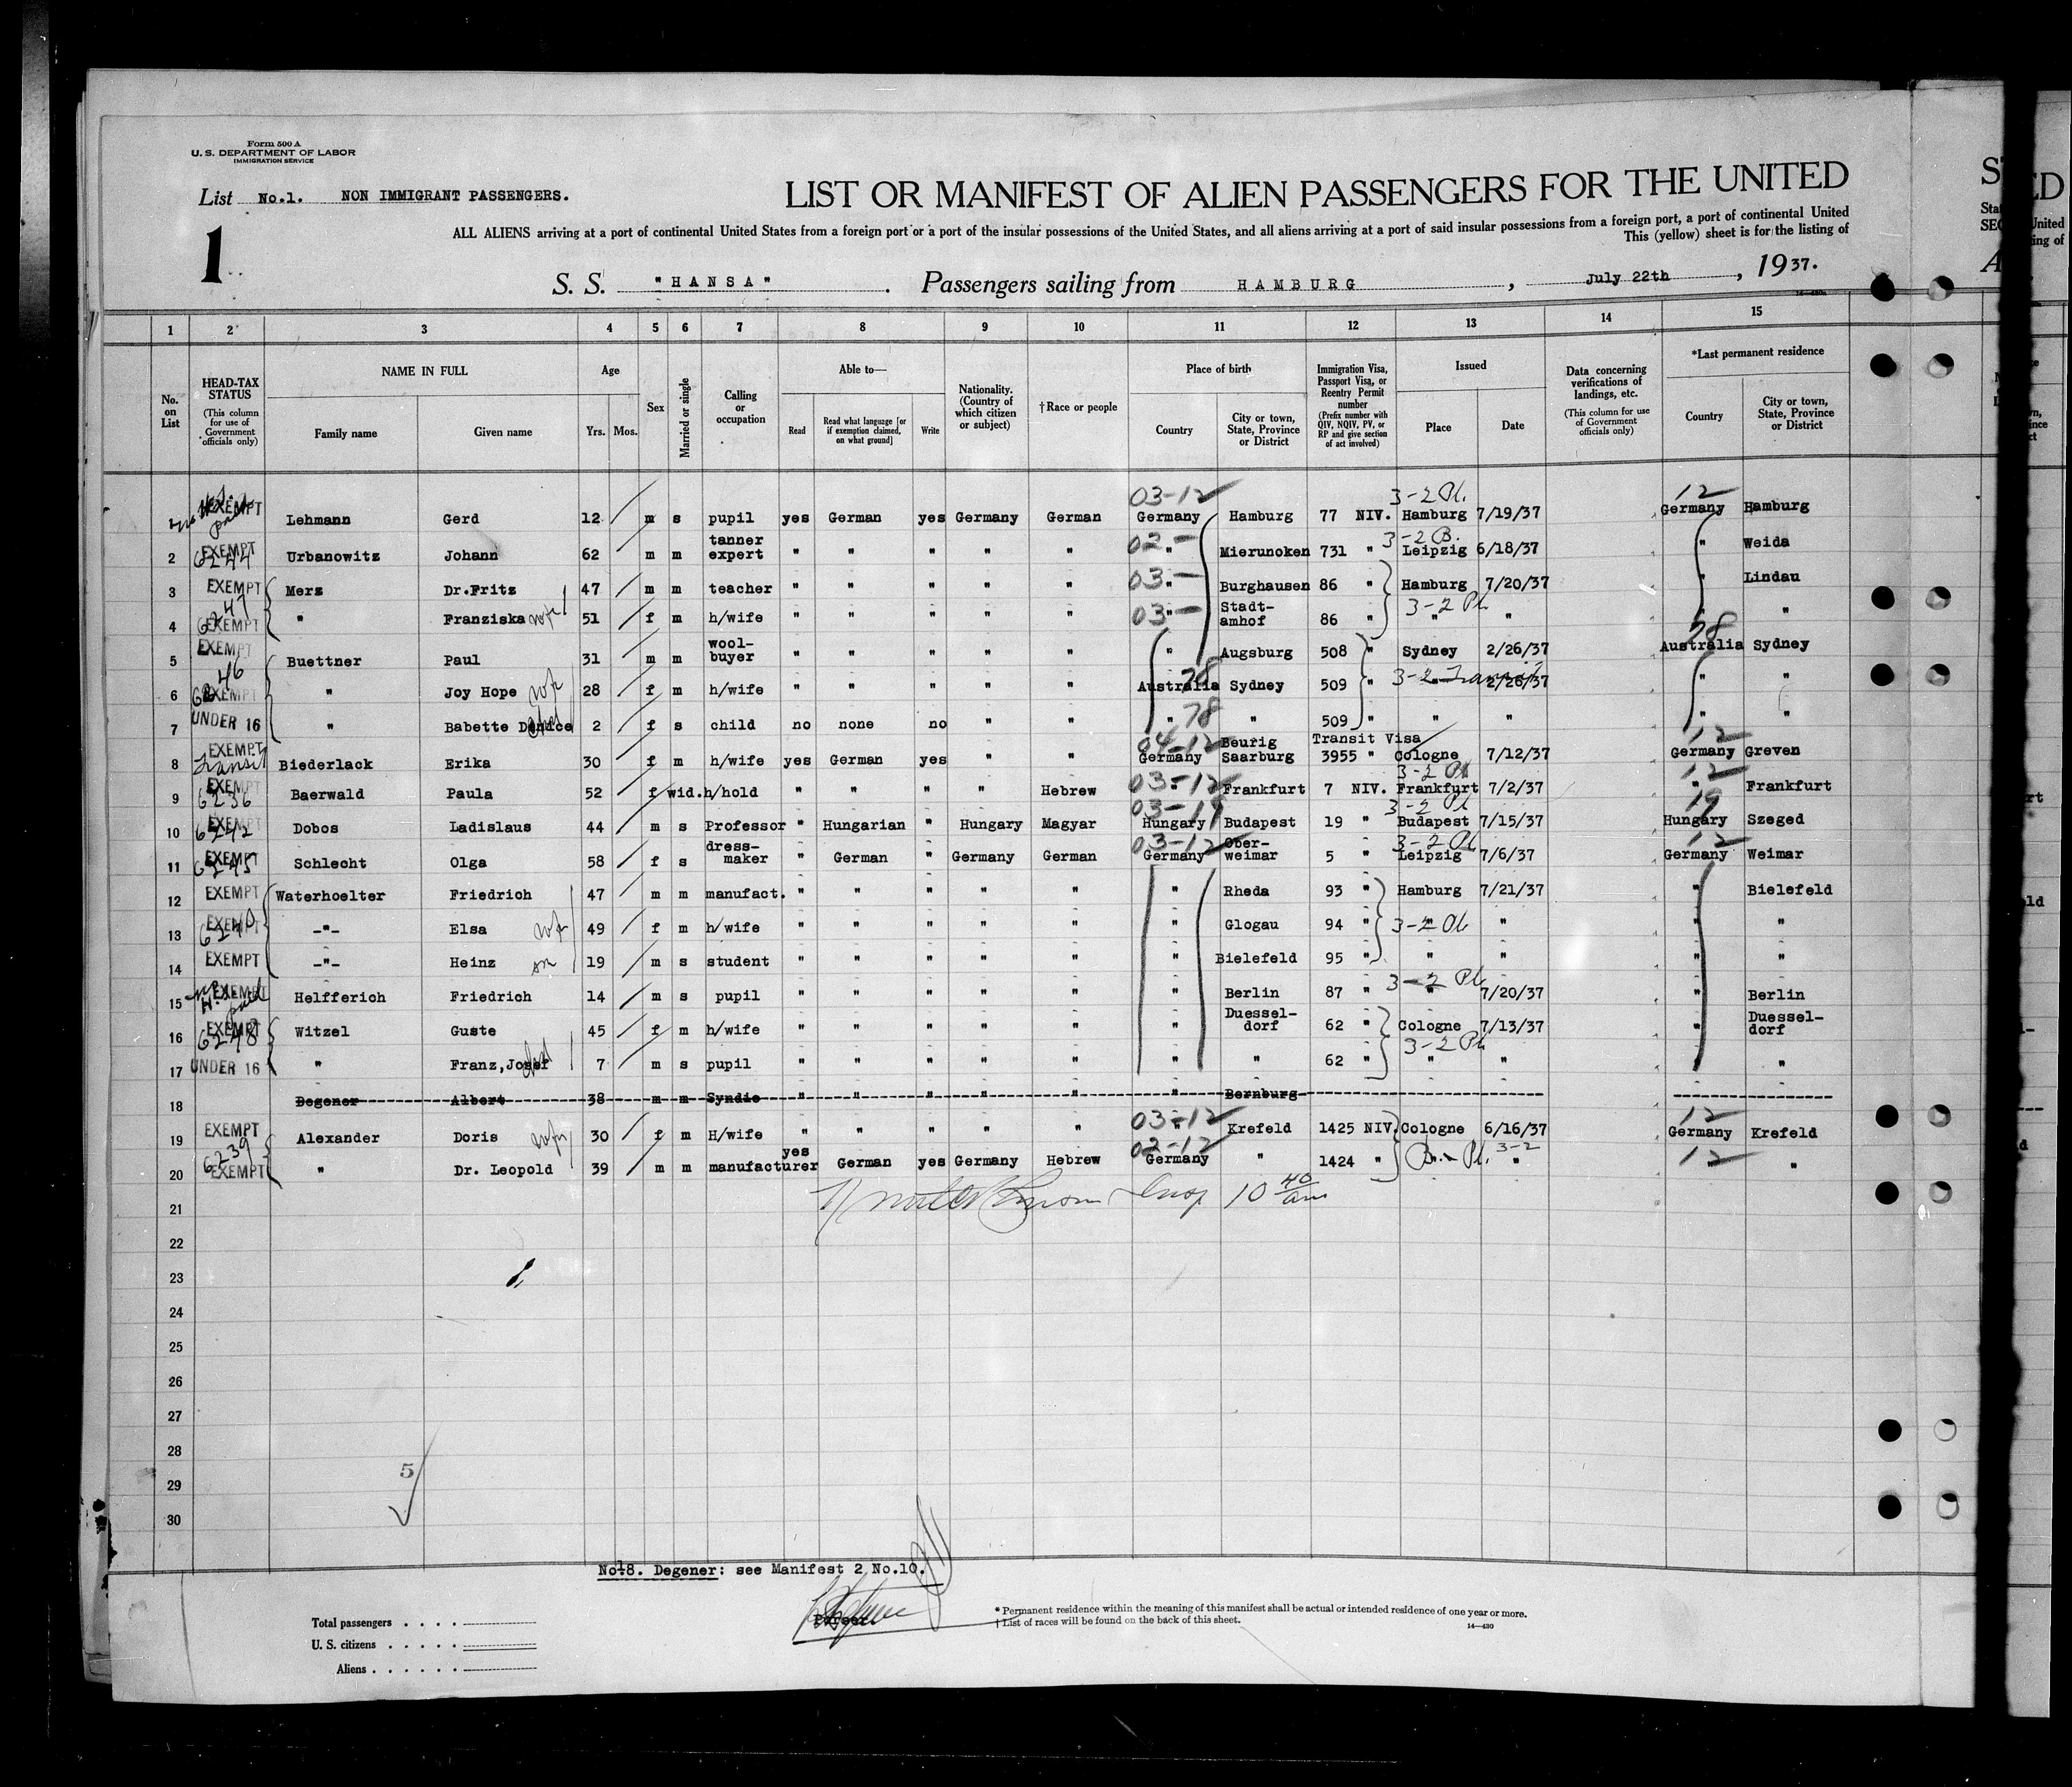 Form 500 A
U. S. DEPARTMENT OF LABOR
IMMIGRATION SERVICE
List No.1. NON IMMIGRANT PASSENGERS.
1
LIST OR MANIFEST OF ALIEN PASSENGERS FOR THE UNITED
ALL ALIENS arriving at a port of continental United States from a foreign port or a port of the insular possessions of the United States, and all aliens arriving at a port of said insular possessions from a foreign port, a port of continental United
This (yellow) sheet is for the listing of
S. S. "HANSA". Passengers sailing from HAMBURG, July 22th, 1937.
1 2 3 4 5 6 7 8 9 10 11 12 13 14 15
No. on List
HEAD-TAX STATUS (This column for use of Government officials only)
NAME IN FULL Family name Given name
Age Yrs. Mos.
Sex
Married or single
Calling or occupation
Able to— Read Read what language [or if exemption claimed, on what ground] Write
Nationality. (Country of which citizen or subject)
†Race or people
Place of birth Country City or town, State, Province or District
Immigration Visa, Passport Visa, or Reentry Permit number (Prefix number with QIV, NQIV, PV, or RP and give section of act involved)
Issued Place Date
Data concerning verifications of landings, etc. (This column for use of Government officials only)
*Last permanent residence Country City or town, State, Province or District
EXEMPT Lehmann Gerd 12 m s pupil yes German yes Germany German 03-12 Germany Hamburg 77 NIV. 3-2 Pl. Hamburg 7/19/37 12 Germany Hamburg
2 EXEMPT 6244 Urbanowitz Johann 62 m m tanner expert " " " " " 02- " Mierunoken 731 " 3-2 B. Leipzig 6/18/37 " Weida
3 EXEMPT Merz Dr.Fritz 47 m m teacher " " " " " 03- " Burghausen 86 " Hamburg 7/20/37 " Lindau
4 EXEMPT " Franziska 51 f m h/wife " " " " " 03- " Stadt-amhof 86 " 3-2 Pl " " " "
5 EXEMPT Buettner Paul 31 m m wool-buyer " " " " " " Augsburg 508 " Sydney 2/26/37 78 Australia Sydney
6 EXEMPT " Joy Hope 28 f m h/wife " " " " " 78 Australia Sydney 509 " 3-2 Transit " 2/26/37 " "
7 UNDER 16 " Babette Denice 2 f s child no none no " " " 78 " 509 " " " "
8 EXEMPT Transit Biederlack Erika 30 f m h/wife yes German yes " " 04-12 Germany Beurig Saarburg Transit Visa 3955 " Cologne 7/12/37 12 Germany Greven
9 EXEMPT 6236 Baerwald Paula 52 f wid. h/hold " " " " Hebrew 03-12 " Frankfurt 7 NIV. 3-2 Pl Frankfurt 7/2/37 12 " Frankfurt
10 EXEMPT 6242 Dobos Ladislaus 44 m s Professor " Hungarian " Hungary Magyar 03-19 Hungary Budapest 19 " 3-2 Pl Budapest 7/15/37 19 Hungary Szeged
11 EXEMPT 6245 Schlecht Olga 58 f s dress-maker " German " Germany German 03-12 Germany Ober-weimar 5 " 3-2 Pl Leipzig 7/6/37 12 Germany Weimar
12 EXEMPT Waterhoelter Friedrich 47 m m manufact. " " " " " " Rheda 93 " Hamburg 7/21/37 " Bielefeld
13 EXEMPT -"- Elsa 49 f m h/wife " " " " " " Glogau 94 " 3-2 Pl " " " "
14 EXEMPT -"- Heinz 19 m s student " " " " " " Bielefeld 95 " " " " "
15 EXEMPT Helfferich Friedrich 14 m s pupil " " " " " " Berlin 87 " 3-2 Pl " 7/20/37 " Berlin
16 EXEMPT 6248 Witzel Guste 45 f m h/wife " " " " " " Duessel-dorf 62 " Cologne 7/13/37 " Duessel-dorf
17 UNDER 16 " Franz,Josef 7 m s pupil " " " " " " " 62 " 3-2 Pl " " "
18 Degener Albert 38 m m Syndic " " " " " " Bernburg
19 EXEMPT Alexander Doris 30 f m H/wife " " " " " 03-12 " Krefeld 1425 NIV. Cologne 6/16/37 12 Germany Krefeld
20 6239 EXEMPT " Dr. Leopold 39 m m manufacturer yes German yes Germany Hebrew 02-12 Germany " 1424 " Pl. 3-2 " 12 " "
21 Insp 10 40 am
22
23
24
25
26
27
28
29
30
5
No18. Degener: see Manifest 2 No.10.
Purser
Total passengers
U. S. citizens
Aliens
* Permanent residence within the meaning of this manifest shall be actual or intended residence of one year or more.
† List of races will be found on the back of this sheet.
14—430